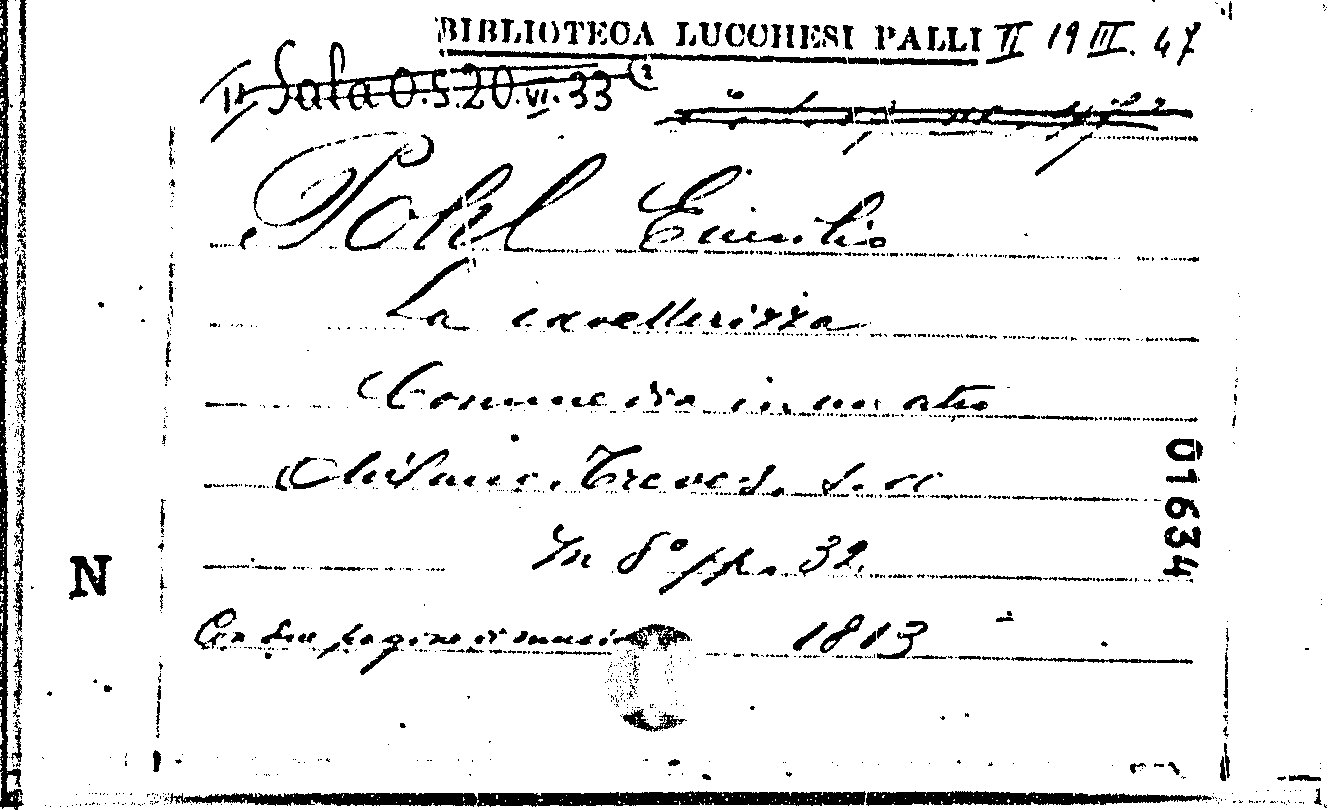 BIBLIOTECA LUCCHESI PALLI II 19 III. 47
II Sala O.5.20.VI.33 (2
Pohl Emilio
La cavallerizza
Commedia in un atto
Milano. Treves. s. a
In 8° pp. 32.
Con due pagine di musica 1813
01634
N